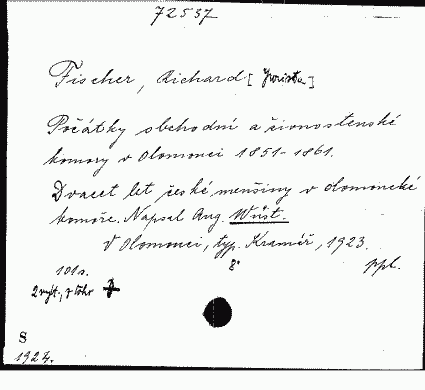 72537
Fischer, Richard [Jurista]
Počátky obchodní a živnostenské
komory v Olomouci 1851-1861.
Dvacet let české menšiny v olomoucké
komoře. Napsal Aug. Wüst.
V Olomouci, typ. Kramář, 1923.
101 s. 8° ppl.
2 výt., z toho
S
1924.